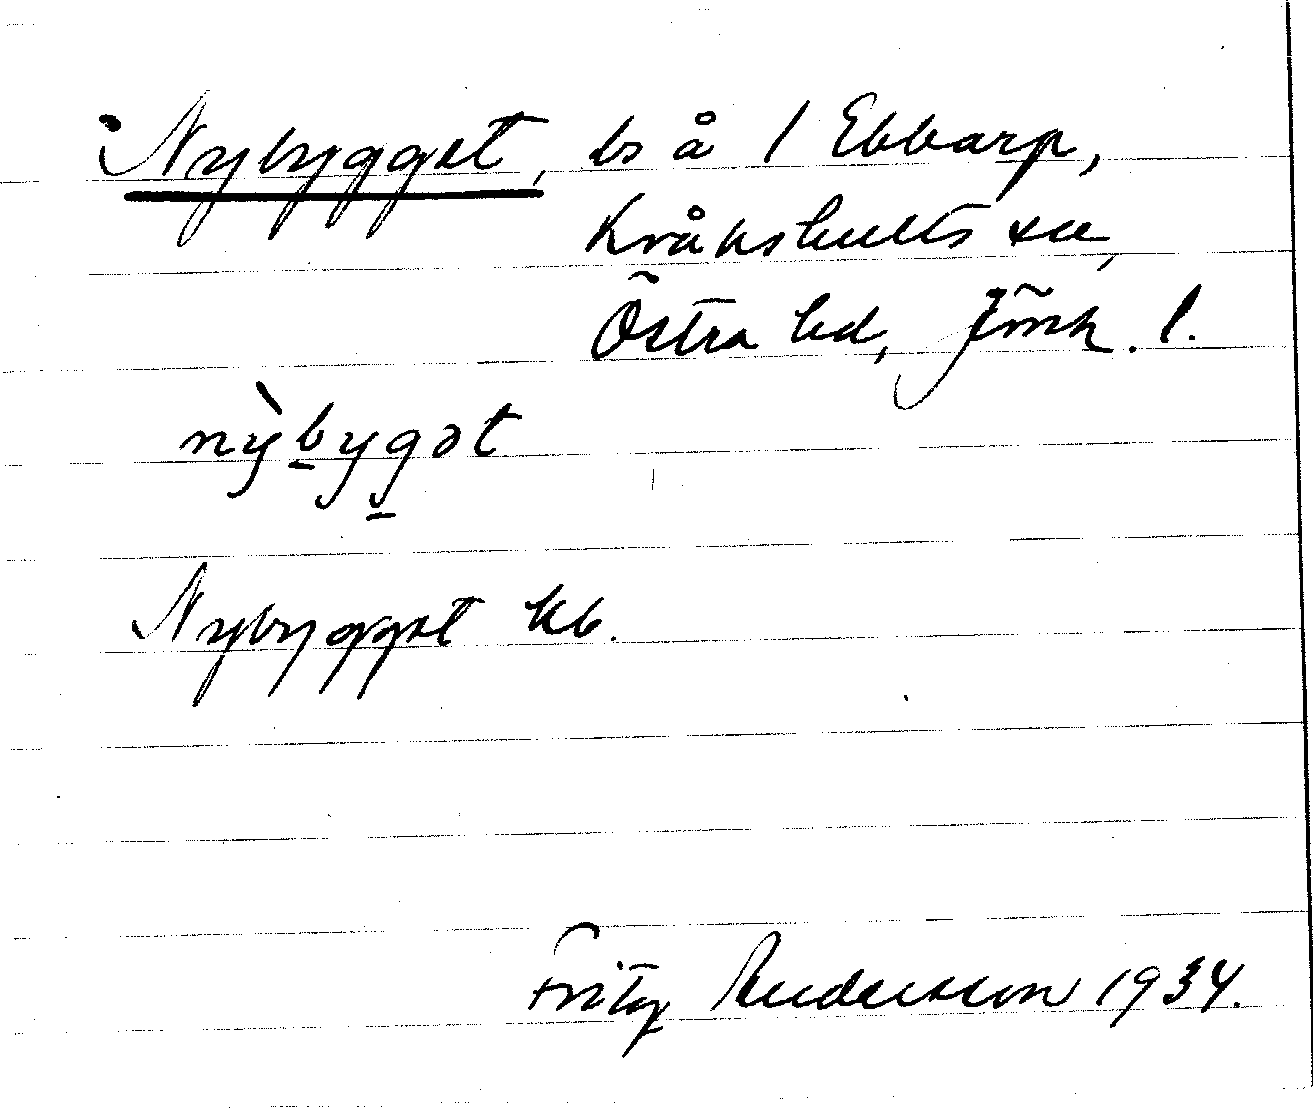 Nybygget, bs å 1 Ebbarp,
Kråkshults sn,
Östra hd, Jönk. l.
nỳbygət
Nybygget kb.
Fritz Andersson 1934.